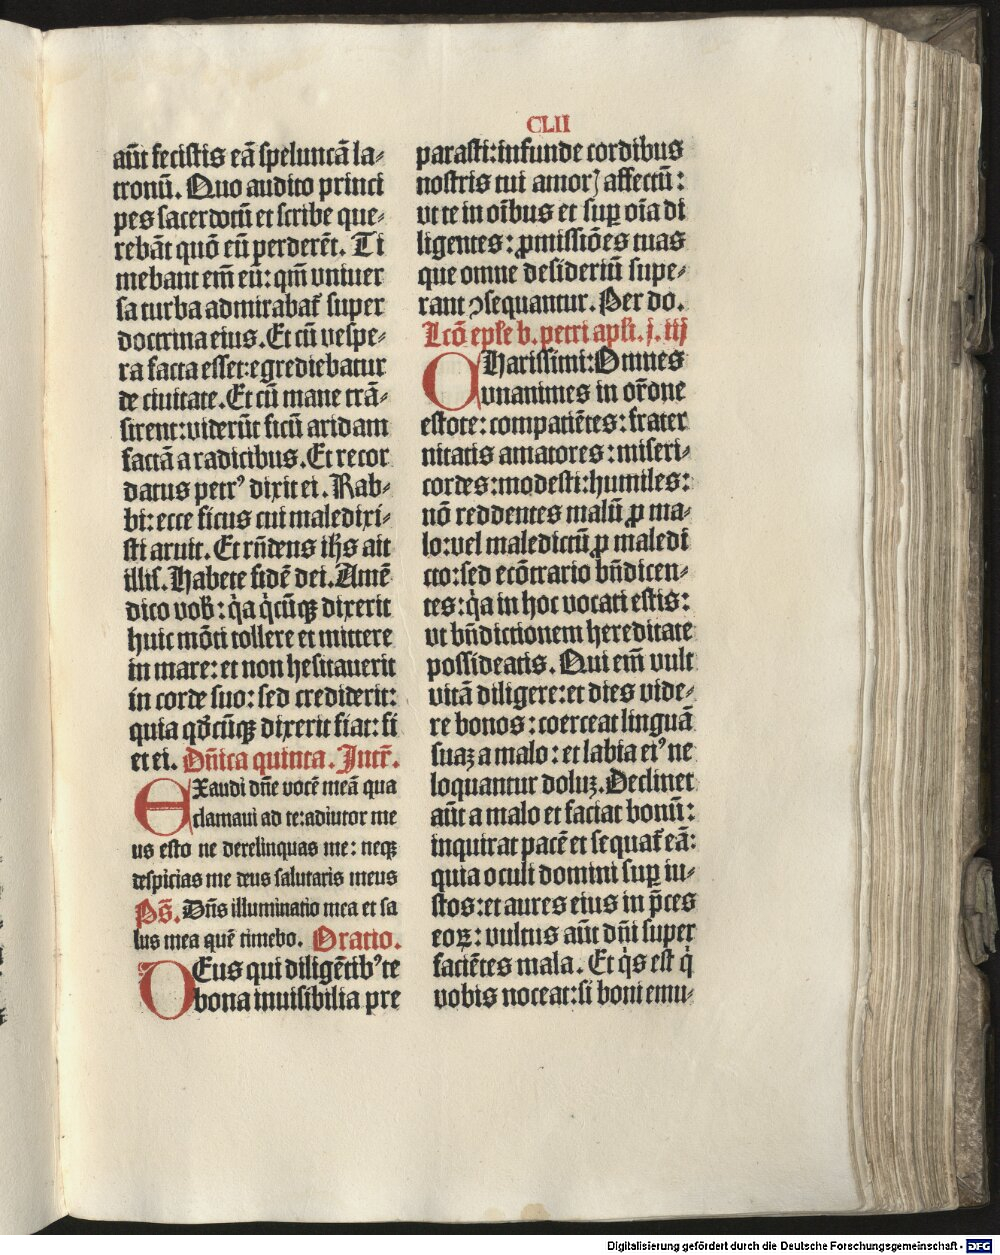 CLII
aūt fecistis eā speluncā la⸗
tronū. Quo audito princi
pes sacerdotū et scribe que⸗
rebāt quō eū perderēt. Ti
mebant em̄ eū: qm̄ vniuer
sa turba admirabat᷑ super
doctrina eius. Et cū vespe⸗
ra facta esset: egrediebatur
de ciuitate. Et cū mane trā⸗
sirent: viderūt ficū aridam
factā a radicibus. Et recor
datus petrꝰ dixit ei. Rab⸗
bi: ecce ficus cui maledixi⸗
sti aruit. Et rn̄dens ih̄s ait
illis. Habete fidē dei. Amē
dico vob̄: qͥa qͥcūqꝫ dixerit
huic mōti tollere et mittere
in mare: et non hesitauerit
in corde suo: sed crediderit:
quia qd̓cūqꝫ dixerit fiat: fi
et ei. Dn̄ica quinta. Intr̄.
EXaudi dn̄e vocē meā qua
clamaui ad te: adiutor me
us esto ne derelinquas me: neqꝫ
despicias me deus salutaris meus
Ps̄. Dn̄s illuminatio mea et sa
lus mea quē timebo. Oratio.
DEus qui diligētibꝰ te
bona inuisibilia pre
parasti: infunde cordibus
nostris tui amorꝭ affectū:
vt te in oībus et suꝑ oīa di
ligentes: ꝓmissiōes tuas
que omne desideriū supe⸗
rant ꝯsequantur. Per do.
Lcō ep̄le b. petri apl̄i. j. iij
CHarissimi: Omnes
vnanimes in or̄one
estote: compatiētes: frater
nitatis amatores: miseri⸗
cordes: modesti: humiles:
nō reddentes malū ꝓ ma⸗
lo: vel maledictū ꝓ maledi
cto: sed ecōtrario bn̄dicen⸗
tes: qͥa in hoc vocati estis:
vt bn̄dictionem hereditate
possideatis. Qui em̄ vult
vitā diligere: et dies vide⸗
re bonos: coerceat linguā
suaꝫ a malo: et labia eiꝰ ne
loquantur doluꝫ. Declinet
aūt a malo et faciat bonū:
inquirat pacē et sequat᷑ eā:
quia oculi domini suꝑ iu⸗
stos: et aures eius in p̄ces
eoꝝ: vultus aūt dn̄i super
faciētes mala. Et qͥs est qͥ
vobis noceat: si boni emu⸗
Digitalisierung gefördert durch die Deutsche Forschungsgemeinschaft - DFG